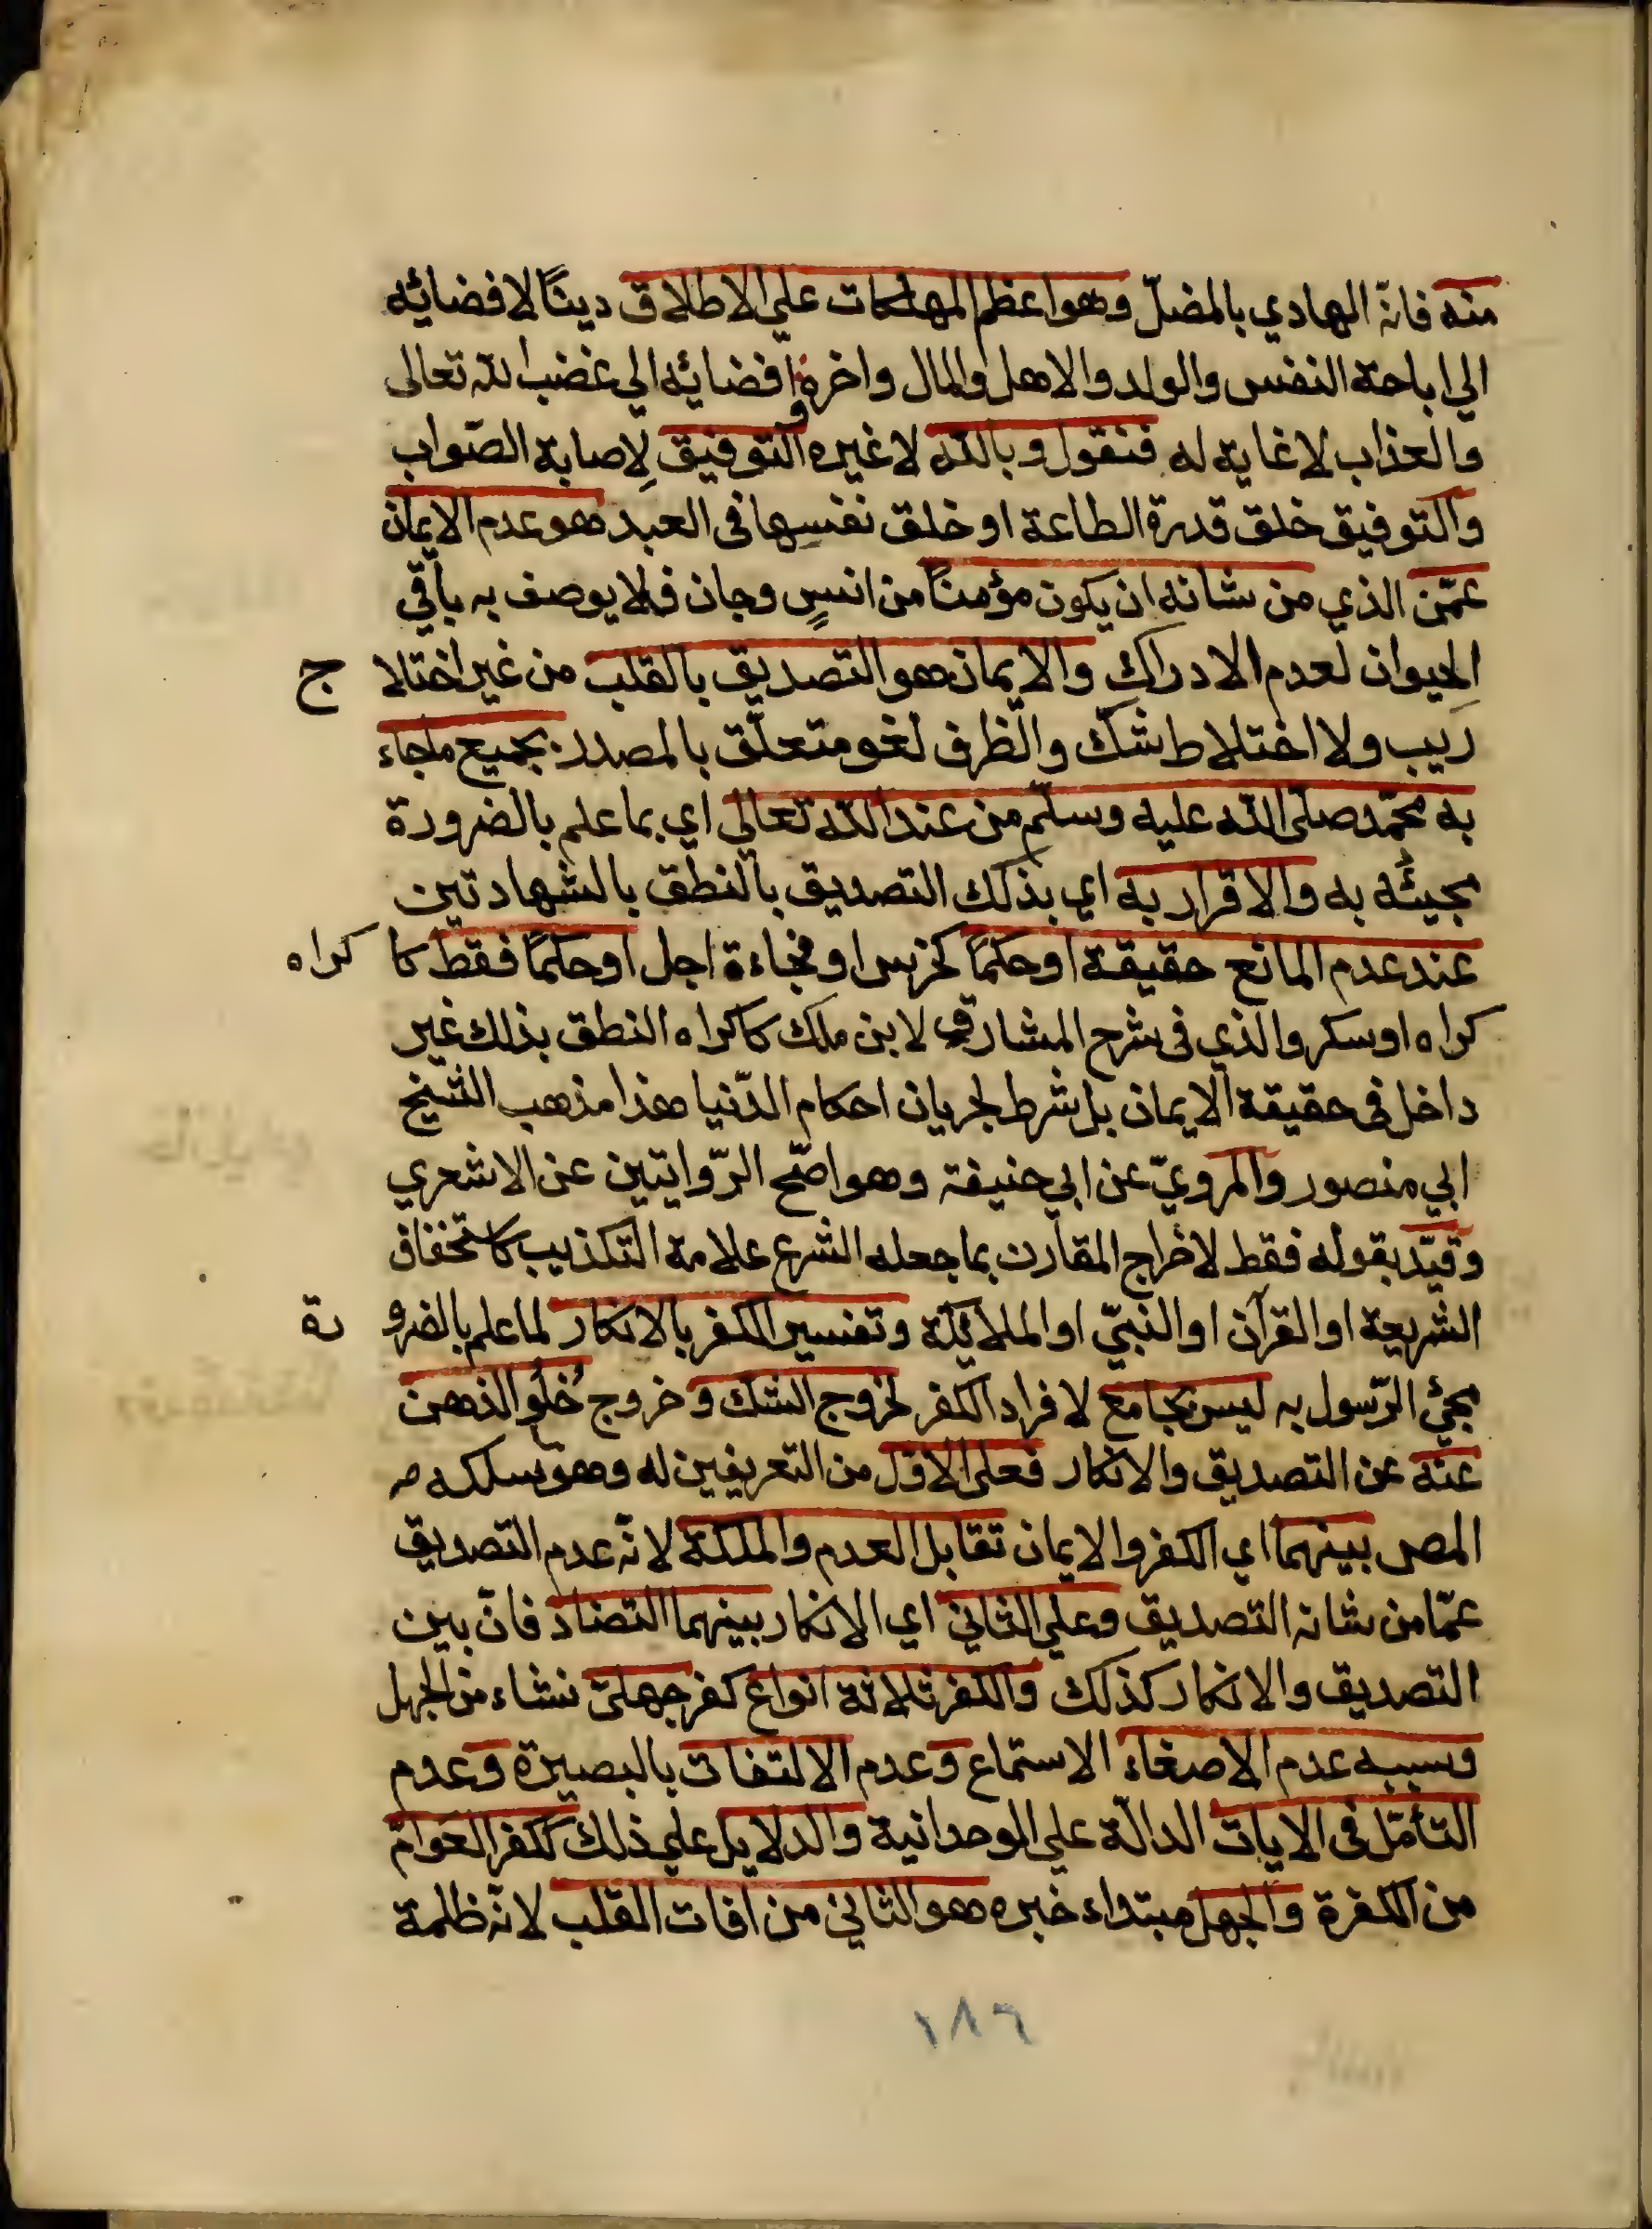 منه فانه الهادي بالمضلّ وهو اعظم المهلكات علي الاطلاق دينًا لافضائه
الي اباحة النفس والولد والاهل والمال واخرة افضائه الي غضب الله تعالى
والعذاب لا غاية له فنقول وبالله لا غيره التوفيق لِاصابة الصّواب
والتوفيق خلق قدرة الطاعة او خلق نفسِها فى العبد هو عدم الايمان
عمّن الذي من شانه ان يكون مؤمنًا من انسٍ وجان فلا يوصف به باقي
الحيوان لعدم الادراك والايمان هو التصديق بالقلب من غير اختلا ج
ريب ولا اختلاط شكّ والظرف لغو متعلّق بالمصدر بجميع ماجاء
به محمّد صلّى الله عليه وسلّم من عند الله تعالي اي بما علم بالضرورة
مجيئُه به والاقرار به اي بذلك التصديق بالنطق بالشهادتين
عند عدم المانع حقيقة او حكمًا كخرس او فجاءة اجل او حكمًا فقط كا كراه
كراه او سكر والذي فى شرح المشارق لابن ملك كاكراه النطق بذلك غير
داخل فى حقيقة الايمان بل شرط لجريان احكام الدّنيا هذا مذهب الشيخ
ابي منصور والمرويّ عن ابي حنيفة وهو اصّح الرّوايتين عن الاشعري
وقيّد بقوله فقط لاخراج المقارن بما جعله الشرع علامة التكذيب كاستخفاف
الشريعة او القرآن او النبيّ او الملائكة وتفسير الكفر بالانكار لما علم بالضرو رة
مجئ الرّسول به ليس بجامع لافراد الكفر لخروج الشك وخروج خُلُو الذهن
عنه عن التصديق والانكار فعلى الاوّل من التعريفين له وهو سلكه
المص بينهما اي الكفر والايمان تقابل العدم والملكة لانّه عدم التصديق
عمّا من شانه التصديق وعلي الثاني اي الانكار بينهما التضادّ فانّ بين
التصديق والانكار كذلك والكفر ثلاثة انواع كفر جهليّ نشاء من الجهل
وسببه عدم الاصغاء الاستماع وعدم الالتفات بالبصيرة وعدم
التأمّل فى الايات الدالّة علي الوحدانية والدلايل علي ذلك ككفر العوامّ
من الكفرة والجهل مبتداء خبره هو الثاني من افات القلب لانّه ظلمة
١٨٦